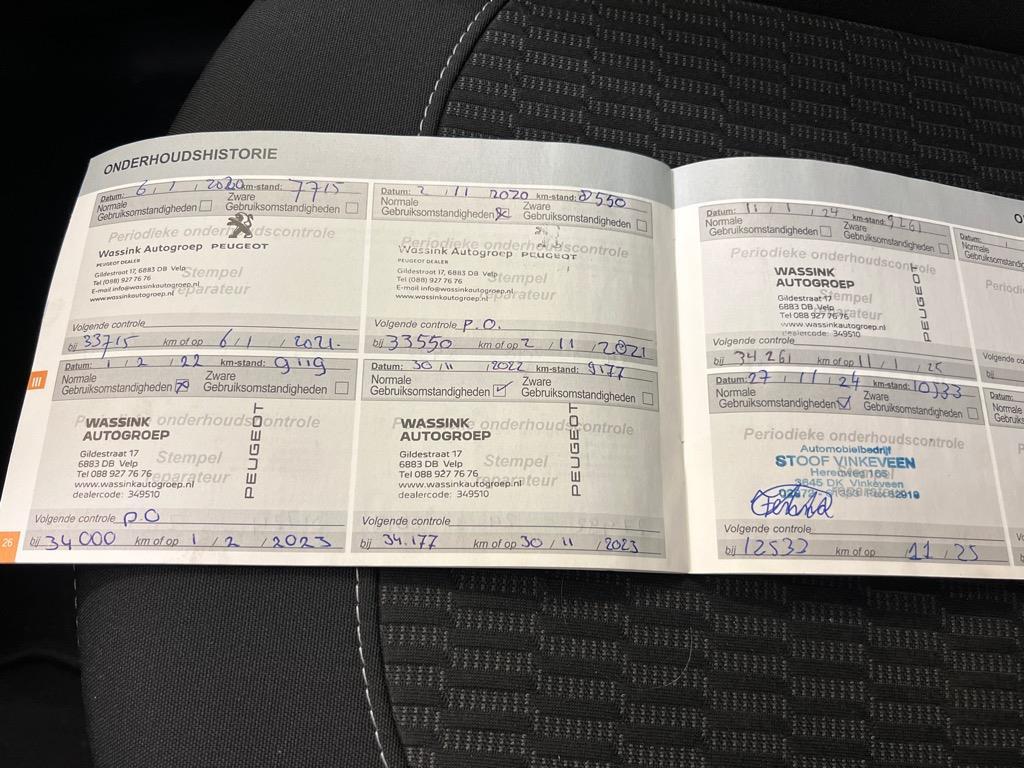 ONDERHOUDSHISTORIE
Datum: 6 / 1 / 2020 km-stand: 7715
Normale Gebruiksomstandigheden
Zware Gebruiksomstandigheden
Periodieke onderhoudscontrole
Wassink Autogroep PEUGEOT
PEUGEOT DEALER
Gildestraat 17, 6883 DB Velp
Tel (088) 927 76 76
E-mail info@wassinkautogroep.nl
www.wassinkautogroep.nl
Stempel
reparateur
Volgende controle
bij 33715 km of op 6 / 1 / 2021.
Datum: 2 / 11 / 2020 km-stand: 8550
Normale Gebruiksomstandigheden
Zware Gebruiksomstandigheden
Periodieke onderhoudscontrole
Wassink Autogroep PEUGEOT
PEUGEOT DEALER
Gildestraat 17, 6883 DB Velp
Tel (088) 927 76 76
E-mail info@wassinkautogroep.nl
www.wassinkautogroep.nl
Stempel
reparateur
Volgende controle P.O.
bij 33550 km of op 2 / 11 / 2021
III
Datum: 1 / 2 / 22 km-stand: 9119
Normale Gebruiksomstandigheden
Zware Gebruiksomstandigheden
Periodieke onderhoudscontrole
WASSINK
AUTOGROEP
Gildestraat 17
6883 DB Velp
Tel 088 927 76 76
www.wassinkautogroep.nl
dealercode: 349510
PEUGEOT
Stempel
reparateur
Volgende controle P.O
bij 34000 km of op 1 / 2 / 2023
Datum: 30 / 11 / 2022 km-stand: 9177
Normale Gebruiksomstandigheden
Zware Gebruiksomstandigheden
Periodieke onderhoudscontrole
WASSINK
AUTOGROEP
Gildestraat 17
6883 DB Velp
Tel 088 927 76 76
www.wassinkautogroep.nl
dealercode: 349510
PEUGEOT
Stempel
reparateur
Volgende controle
bij 34.177 km of op 30 / 11 / 2023
26
Datum: 11 / 1 / 24 km-stand: 9261
Normale Gebruiksomstandigheden
Zware Gebruiksomstandigheden
Periodieke onderhoudscontrole
WASSINK
AUTOGROEP
Gildestraat 17
6883 DB Velp
Tel 088 927 76 76
www.wassinkautogroep.nl
dealercode: 349510
PEUGEOT
Stempel
reparateur
Volgende controle
bij 34.261 km of op 11 / 1 / 25
Datum: 27 / 11 / 24 km-stand: 10533
Normale Gebruiksomstandigheden
Zware Gebruiksomstandigheden
Periodieke onderhoudscontrole
Automobielbedrijf
STOOF VINKEVEEN
Herenweg 165
3645 DK Vinkeveen
Volgende controle
bij 12533 km of op / 11 / 25
Datum:
Datum:
bij